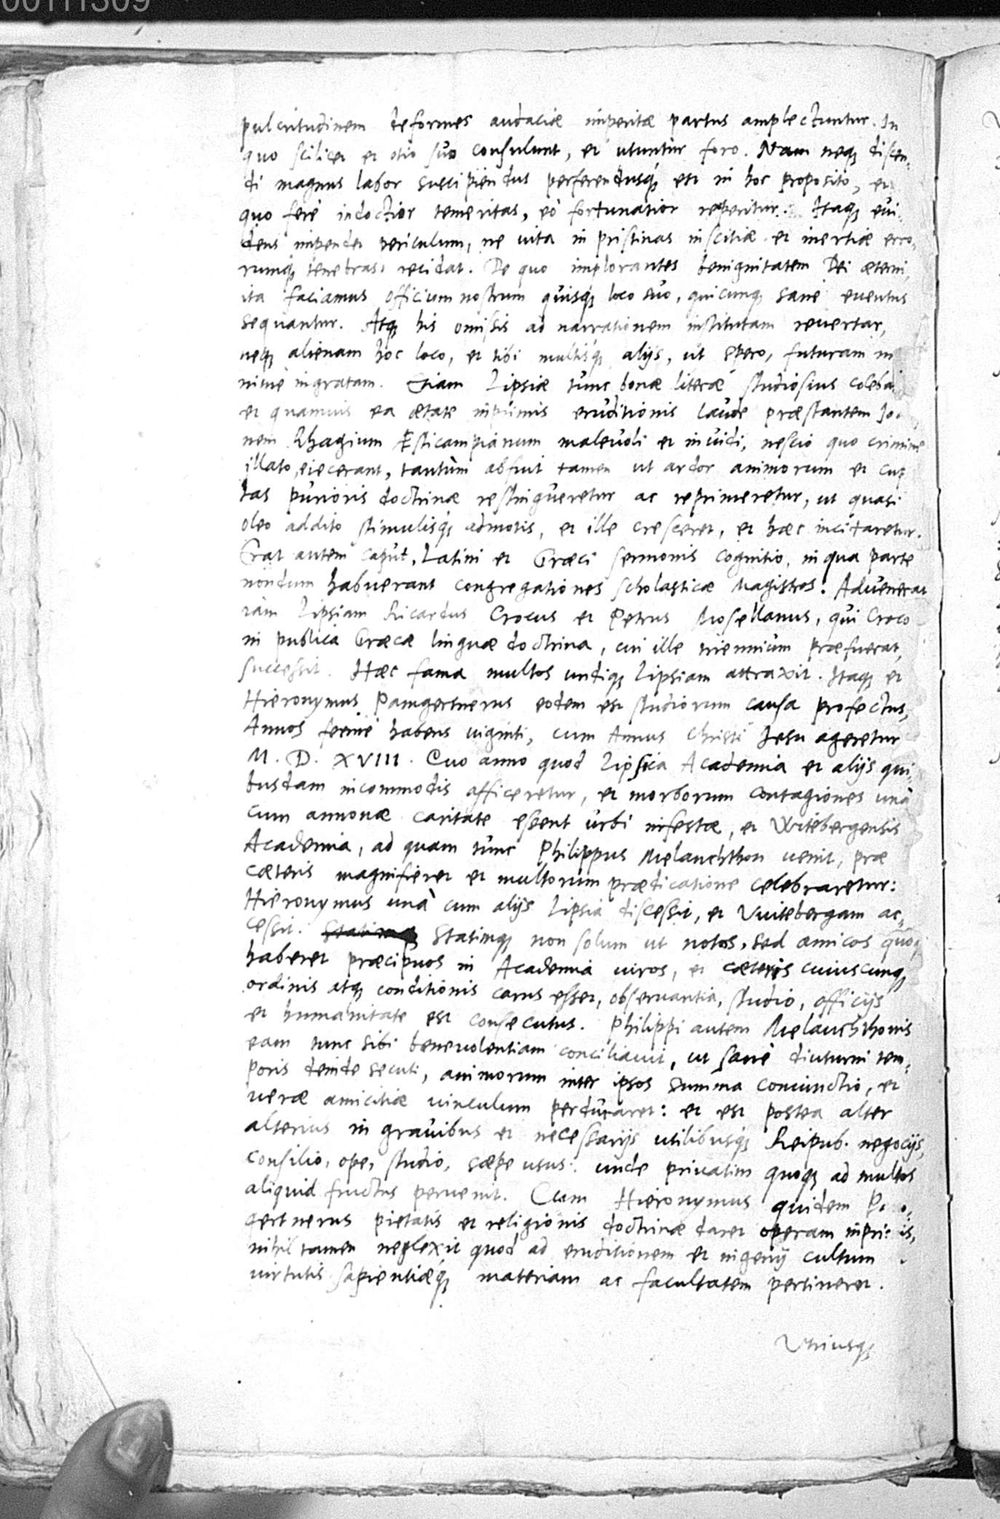 00111309
pulcritudinem deformes audaciæ imperitæ partus amplectuntur. In
quo scilicet et otio suo consulunt, et utuntur foro. Nam neq; discen-
di magnus labor suscipiendus perferendusq́; est in hoc proposito, et
quo ferè indoctior temeritas, eò fortunatior reperitur. Itaq; evi-
dens impendet periculum, ne vita in pristinas inscitiæ et inertiæ erro-
rumq́; tenebras recidat. De quo implorantes benignitatem Dei æterni,
ita faciamus officium nostrum quisq́; loco suo, quicunq; sanè eventus
sequantur. Atq; his omissis ad narrationem institutam revertar,
neq; alienam hoc loco, et tibi multisq́; alijs, ut spero, futuram mi-
nimè ingratam. Etiam Lipsiæ tunc bonæ literæ studiosius coleba
et quamvis ea ætate inprimis eruditionis laude præstantem Jo-
nem Rhagium Æsticampianum malevoli et invidi, nescio quo crimine
illato, eiecerant, tantùm abfuit tamen ut ardor animorum et cup
tas purioris doctrinæ restingueretur ac reprimeretur, ut quasi
oleo addito stimulisq́; admotis, et ille cresceret, et hæc incitaretur.
Erat autem caput, Latini et Græci sermonis cognitio, in qua parte
nondum habuerant congregationes scholasticæ Magistros. Advenerat
iam Lipsiam Ricardus Crocus et Petrus Mosellanus, qui Croco
in publica Græcæ linguæ doctrina, cui ille triennium præfuerat,
successit. Hæc fama multos undiq; Lipsiam attraxit. Itaq; et
Hieronymus Pamgertnerus eodem est studiorum causa profectus,
Annos fermè habens viginti, cum Annus Christi Jesu ageretur
M. D. XVIII. Quo anno quod Lipsica Academia et alijs qui-
busdam incommodis afficeretur, et morborum contagiones unà
cum annonæ caritate essent urbi infestæ, et Witebergensis
Academia, ad quam tunc Philippus Melanchthon venit, præ
cæteris magnifieret et multorum prædicatione celebraretur:
Hieronymus unà cum alijs Lipsia discessit, et Vvitebergam ac-
cessit. Statimq; non solum ut notos, sed amicos quoq;
haberet præcipuos in Academia viros, et cæteris cuiuscunq;
ordinis atq; conditionis carus esset, observantia, studio, officijs
et humanitate est consecutus. Philippi autem Melanchthonis
eam tunc sibi benevolentiam conciliavit, ut sanè diuturni tem-
poris deinde secuti, animorum inter ipsos summa coniunctio, et
veræ amicitiæ vinculum perduraret: et est postea alter
alterius in gravibus et necessarijs utilibusq́; Reipub. negocijs,
consilio, ope, studio, sæpe usus: unde privatim quoq; ad multos
aliquid fructus pervenit. Cum Hieronymus quidem
gertnerus pietatis et religionis doctrinæ daret operam inprimis,
nihil tamen neglexit quod ad eruditionem et ingenij cultum
virtutis sapientiæq́; materiam ac facultatem pertineret.
Utriusq;